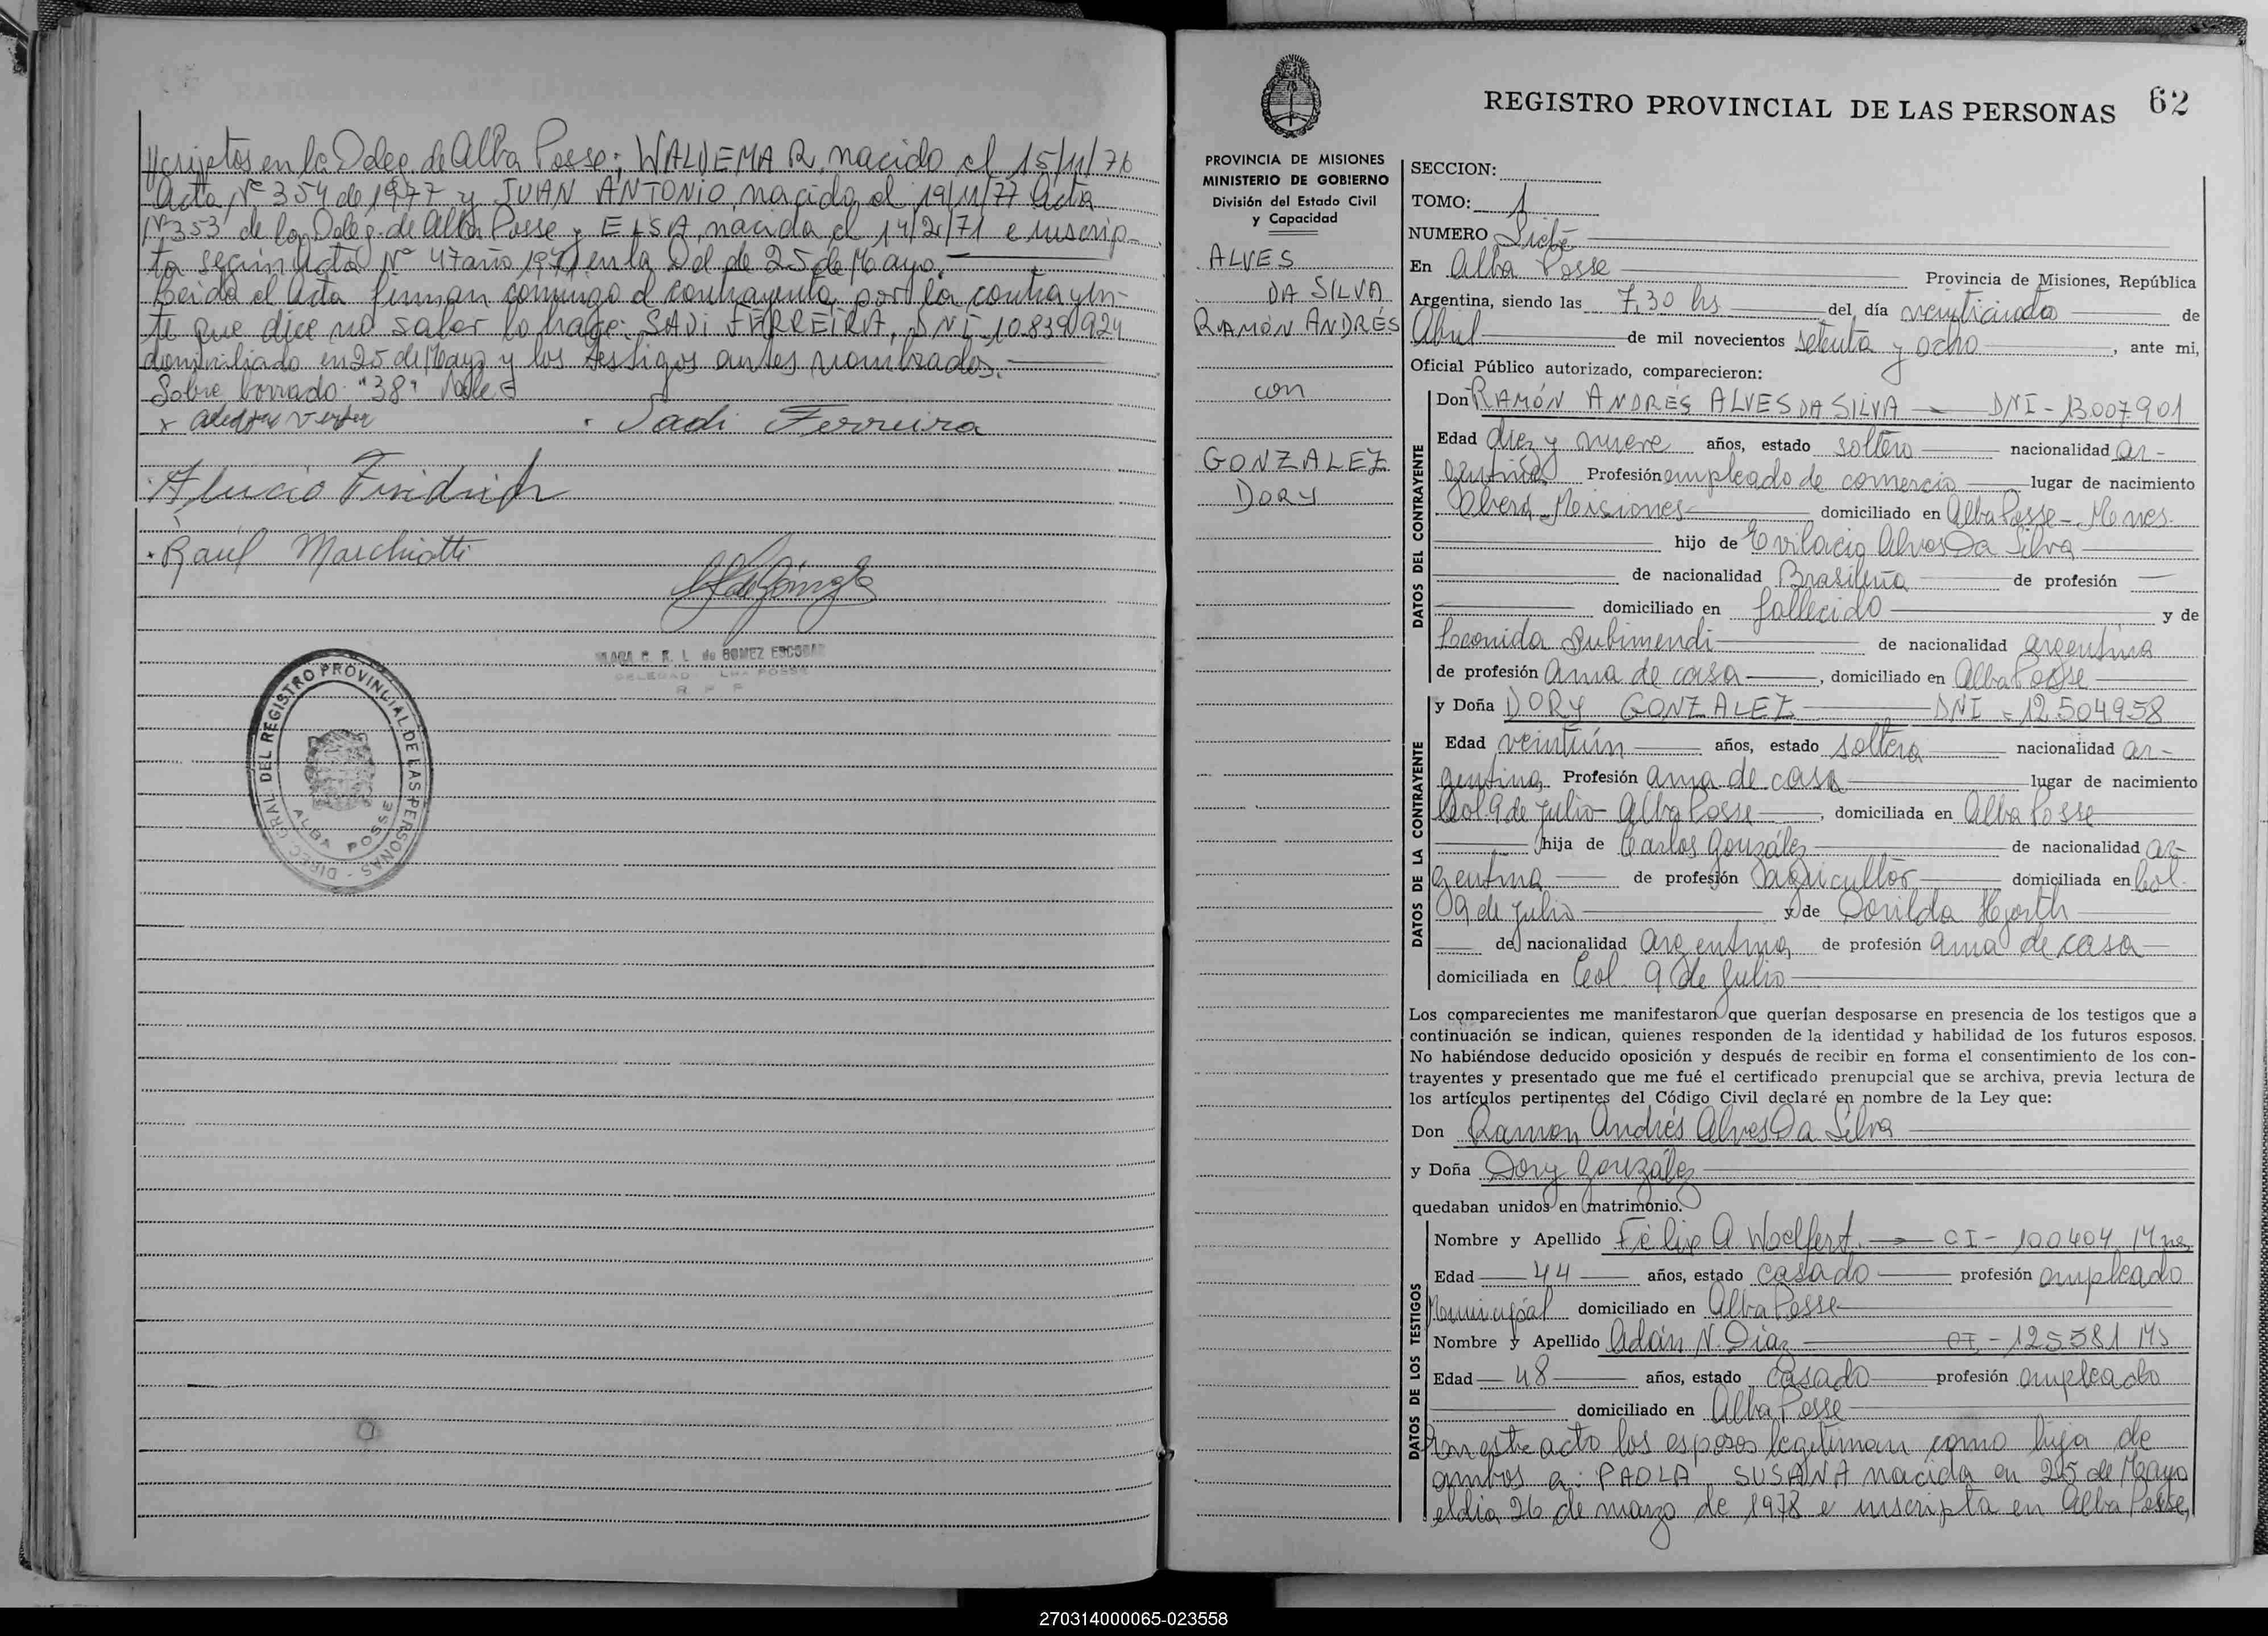 criptos en la Deleg. de Alba Posse: WALDEMAR, nacido el 15/11/76
Acta Nº 354 de 1977 y JUAN ANTONIO, nacido el 19/11/77 Acta
Nº 353 de la Deleg. de Alba Posse y ELSA, nacida el 14/2/71 e inscrip-
ta según Acta Nº 47 año 1971 en la Del de 25 de Mayo.
Leida el Acta firman conmigo el contrayente, por la contrayen-
te que dice no saber lo hace: SADI FERREIRA, DNI 10.839.924
domiciliado en 25 de Mayo y los testigos antes nombrados.
Sobre borrado: "38" Vale
Sadi Ferreira
Alucio Fridrich
Raúl Marchiotti
CLARA C. R. L. de GOMEZ ESCOBAR
DELEGAD ALBA POSSE
R. P. P.
DIREC. GRAL. DEL REGISTRO PROVINCIAL DE LAS PERSONAS -
ALBA POSSE
REGISTRO PROVINCIAL DE LAS PERSONAS 62
PROVINCIA DE MISIONES
MINISTERIO DE GOBIERNO
División del Estado Civil
y Capacidad
ALVES
DA SILVA
RAMÓN ANDRÉS
con
GONZALEZ
DORY
SECCION:
TOMO: 1
NUMERO Siete
En Alba Posse Provincia de Misiones, República
Argentina, siendo las 7,30 hs del día veinticinco de
Abril de mil novecientos setenta y ocho, ante mi,
Oficial Público autorizado, comparecieron:
DATOS DEL CONTRAYENTE
Don RAMÓN ANDRÉS ALVES DA SILVA DNI - 13.007.901
Edad diez y nueve años, estado soltero nacionalidad ar-
gentina Profesión empleado de comercio lugar de nacimiento
Oberá - Misiones domiciliado en Alba Posse - Mnes.
hijo de Evilacio Alves Da Silva
de nacionalidad Brasileña de profesión
domiciliado en fallecido y de
Leonida Subimendi de nacionalidad argentina
de profesión ama de casa, domiciliado en Alba Posse
DATOS DE LA CONTRAYENTE
y Doña DORY GONZALEZ DNI = 12.504.958
Edad veintiún años, estado soltera nacionalidad ar-
gentina Profesión ama de casa lugar de nacimiento
Col. 9 de Julio - Alba Posse, domiciliada en Alba Posse
hija de Carlos González de nacionalidad ar-
gentina de profesión agricultor domiciliada en Col.
9 de Julio y de Dorilda Hjorth
de nacionalidad argentina de profesión ama de casa
domiciliada en Col. 9 de Julio
Los comparecientes me manifestaron que querían desposarse en presencia de los testigos que a
continuación se indican, quienes responden de la identidad y habilidad de los futuros esposos.
No habiéndose deducido oposición y después de recibir en forma el consentimiento de los con-
trayentes y presentado que me fué el certificado prenupcial que se archiva, previa lectura de
los artículos pertinentes del Código Civil declaré en nombre de la Ley que:
Don Ramón Andrés Alves Da Silva
y Doña Dory González
quedaban unidos en matrimonio.
DATOS DE LOS TESTIGOS
Nombre y Apellido Félix A. Woelfert CI - 100.404 Mnes
Edad 44 años, estado casado profesión empleado
Municipal domiciliado en Alba Posse
Nombre y Apellido Adán N. Díaz CI - 125.581 Ms
Edad 48 años, estado casado profesión empleado
domiciliado en Alba Posse
En este acto los esposos legitiman como hija de
ambos a: PAOLA SUSANA nacida en 25 de Mayo
el día 26 de marzo de 1978 e inscripta en Alba Posse,
270314000065-023558